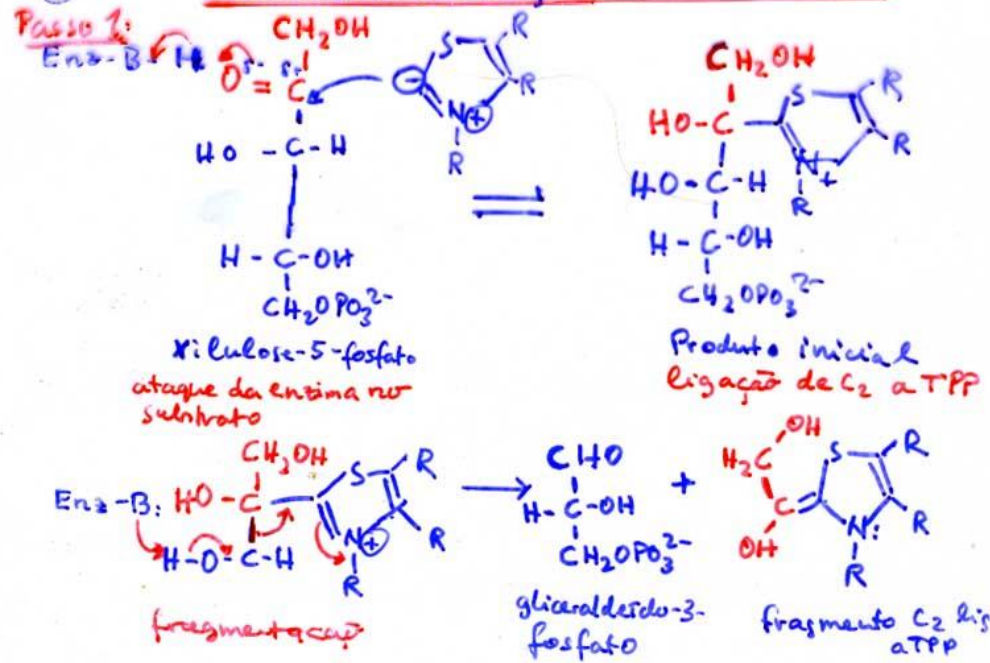 Passo 1:
CH₂OH
Enz-B-H O = C
δ- δ+
S R
R
N+
R
HO - C - H
H - C - OH
CH₂OPO₃²⁻
xilulose-5-fosfato
ataque da enzima no
substrato
CH₂OH
HO - C
S R
R
N+
R
HO - C - H
H - C - OH
CH₂OPO₃²⁻
Produto inicial
ligação de C₂ a TPP
CH₂OH
Enz-B: HO - C
S R
R
N+
R
H-O-C-H
fragmentação
CHO
H - C - OH
CH₂OPO₃²⁻
gliceraldeído-3-
fosfato
+
OH
H₂C
C
OH
S R
R
N:
R
fragmento C₂ lig
a TPP